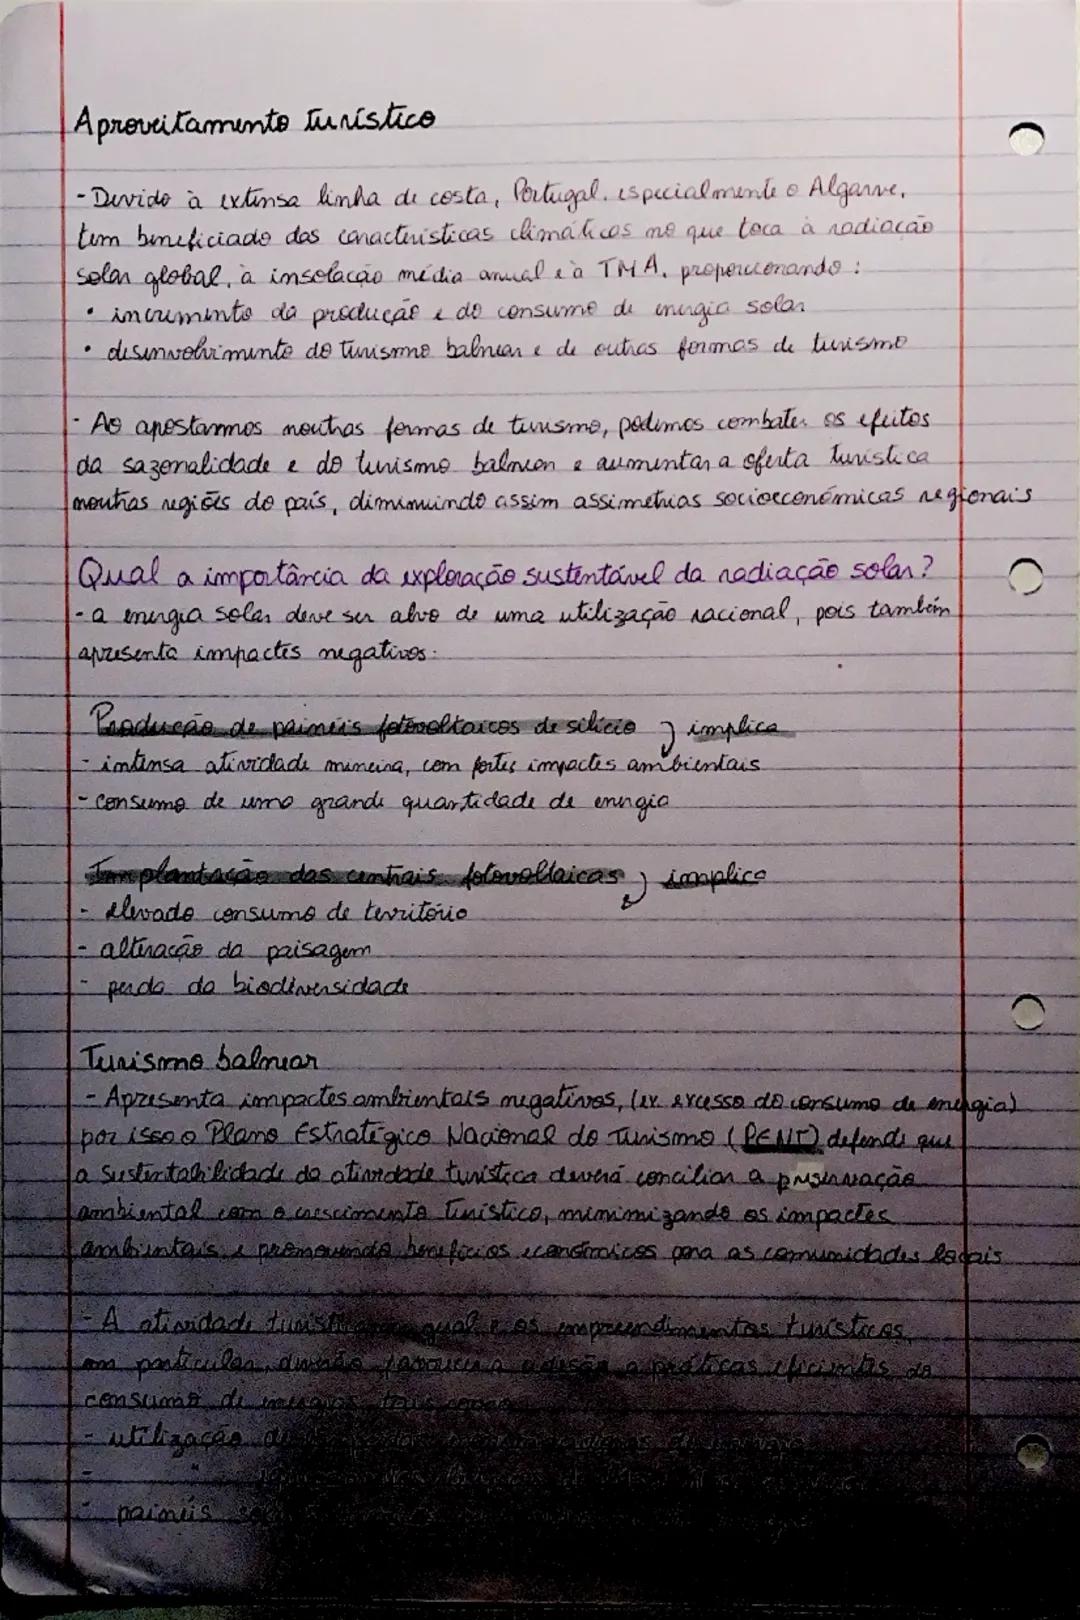 Aproveitamento turístico
- Devido à extensa linha de costa, Portugal, especialmente o Algarve,
tem beneficiado das características climáticas no que toca à radiação
solar global, à insolação média anual e à TMA, proporcionando:
• incremento da produção e do consumo de energia solar
• desenvolvimento do turismo balnear e de outras formas de turismo
- Ao apostarmos noutras formas de turismo, podemos combater os efeitos
da sazonalidade e do turismo balnear e aumentar a oferta turística
noutras regiões do país, diminuindo assim assimetrias socioeconómicas regionais
Qual a importância da exploração sustentável da radiação solar?
- a energia solar deve ser alvo de uma utilização racional, pois também
apresenta impactes negativos:
Produção de painéis fotovoltaicos de silício } implica
- intensa atividade mineira, com fortes impactes ambientais
- consumo de uma grande quantidade de energia
Implantação das centrais fotovoltaicas } implica
- elevado consumo de território
- alteração da paisagem
- perda da biodiversidade
Turismo balnear
- Apresenta impactes ambientais negativos, (ex excesso do consumo de energia)
por isso o Plano Estratégico Nacional do Turismo (PENT) defende que
a sustentabilidade da atividade turística deverá conciliar a preservação
ambiental com o crescimento turístico, minimizando os impactes
ambientais e promovendo benefícios económicos para as comunidades locais
- A atividade turística em geral e os empreendimentos turísticos,
em particular, deverão favorecer a adesão a práticas eficientes do
consumo de energia, tais como:
- utilização de
- "
- painéis